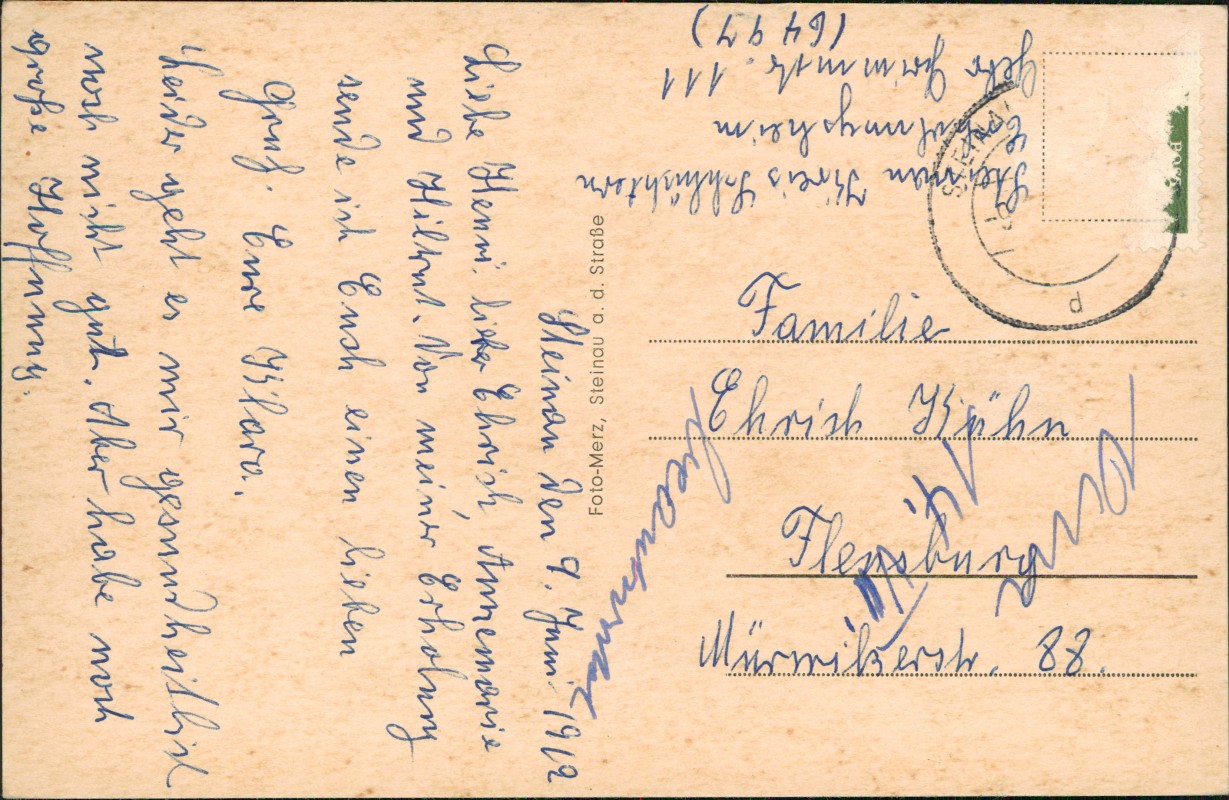 Steinau den 9. Juni 1912
Liebe Henni. lieber Ehrich, Annemarie
und Hiltrut. Von meiner Erholung
sende ich Euch einen lieben
Gruß. Eure Klara.
Leider geht es mir gesundheitlich
noch nicht gut. Aber habe noch
große Hoffnung.
Foto-Merz, Steinau a. d. Straße
111
Erholungsheim
Steinau Kreis Schlüchtern
(6497)
POST
STEINAU
d
Familie
Ehrich Kühn
Flensburg
Mürwikerstr. 88.